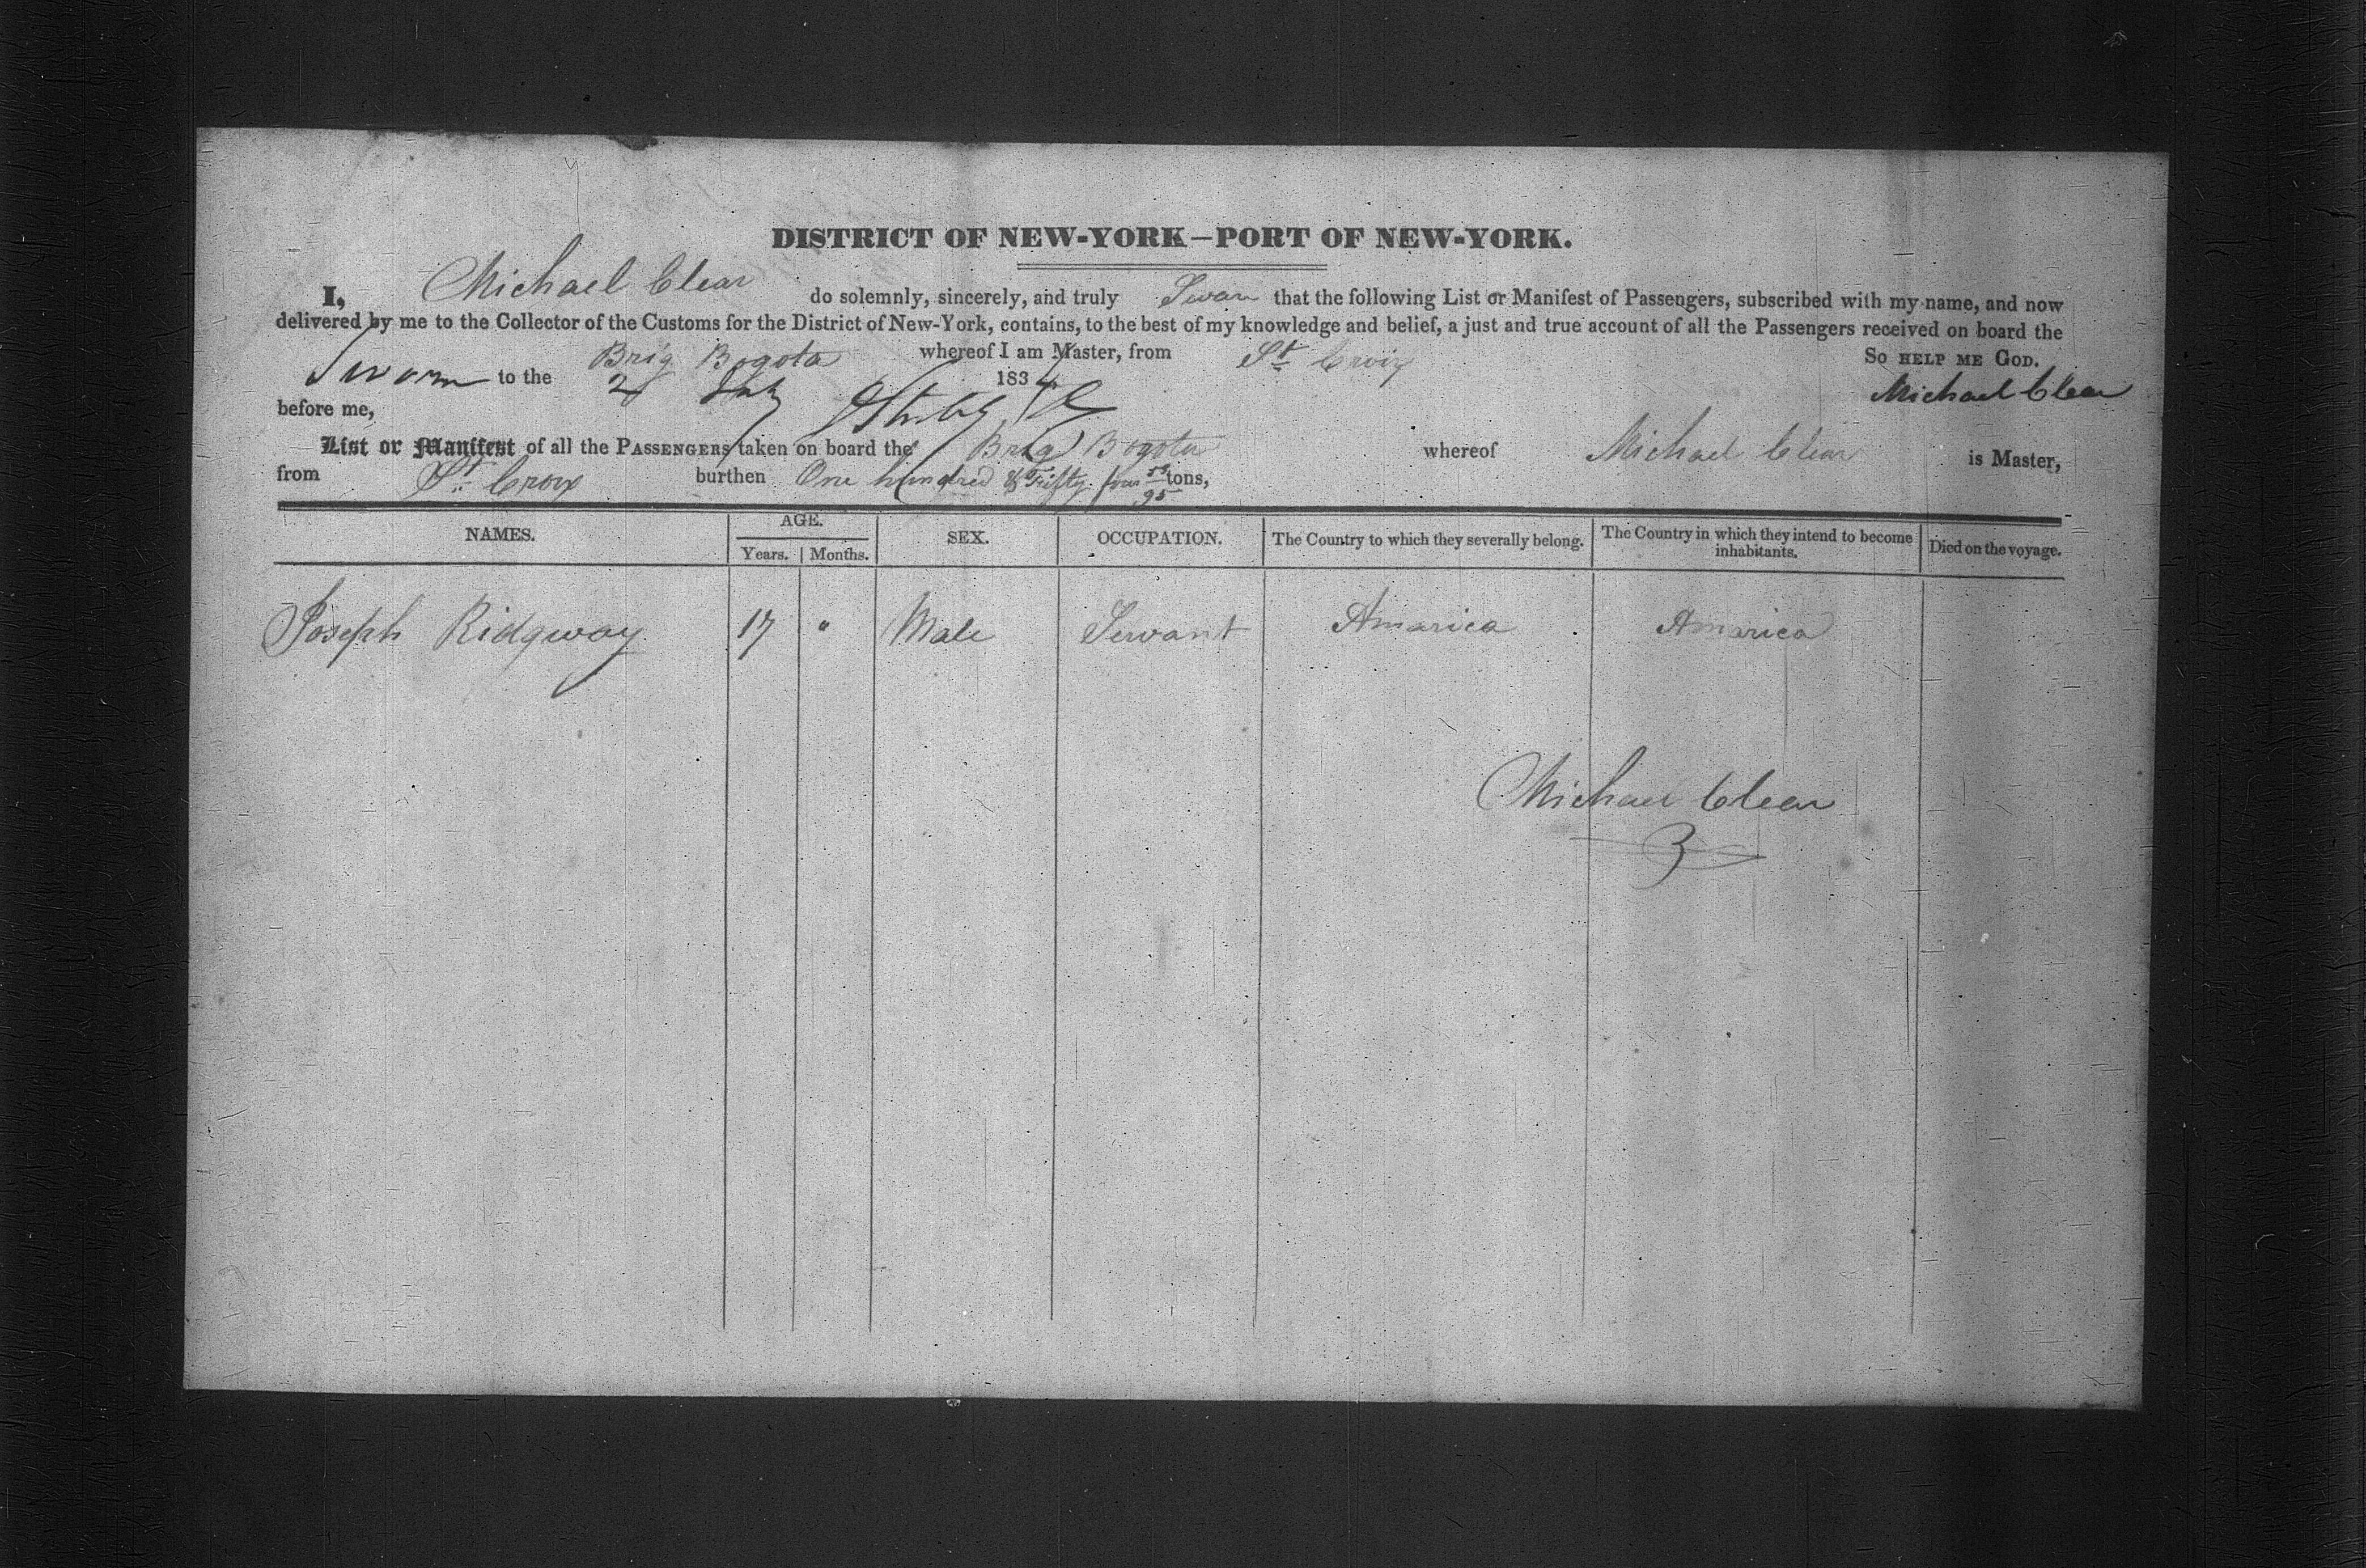 DISTRICT OF NEW-YORK—PORT OF NEW-YORK.
I, Michael Clear do solemnly, sincerely, and truly Swear that the following List or Manifest of Passengers, subscribed with my name, and now
delivered by me to the Collector of the Customs for the District of New-York, contains, to the best of my knowledge and belief, a just and true account of all the Passengers received on board the
Brig Bogota whereof I am Master, from St Croix So HELP ME GOD.
Sworn to the 2 July 1834 Michael Clear
before me,
List or Manifest of all the PASSENGERS taken on board the Brig Bogota whereof Michael Clear is Master,
from St Croix burthen One hundred & Fifty four 53/95 tons,
NAMES. AGE. SEX. OCCUPATION. The Country to which they severally belong. The Country in which they intend to become inhabitants. Died on the voyage.
Years. Months.
Joseph Ridgway 17 " Male Servant Amarica Amarica
Michael Clear